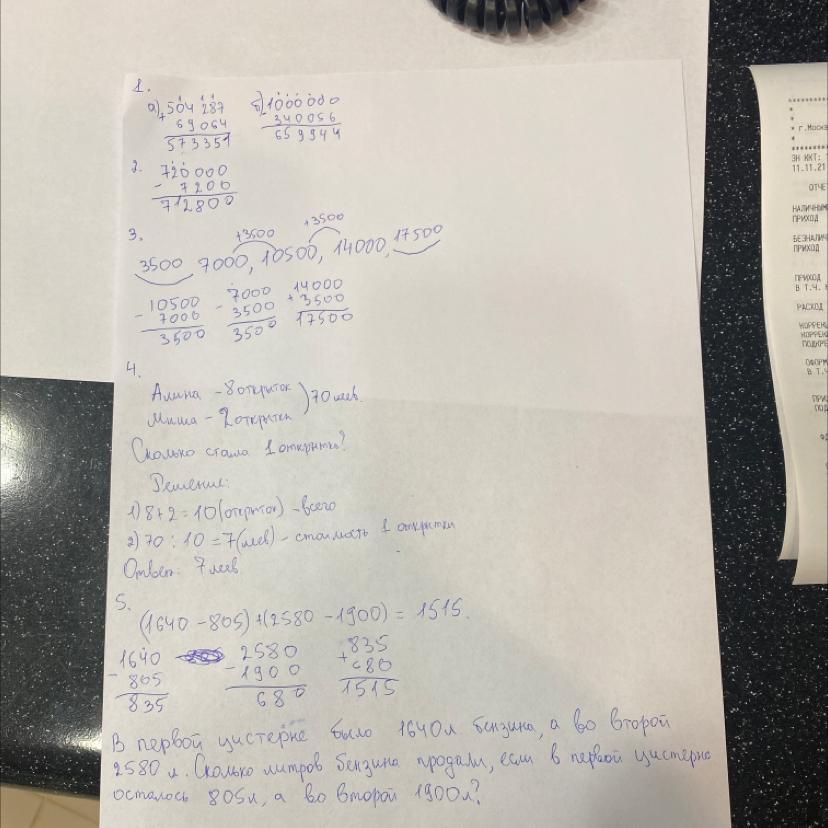 1.
а) 504 287 б) 1000000
+ 69064 - 340056
573351 659944
2. 720000
- 7200
712800
3. +3500 +3500
3500 7000, 10500, 14000, 17500
10500 7000 14000
- 7000 - 3500 + 3500
3500 3500 17500
4.
Алина - 8 открыток
Миша - 2 открытки ) 70 леев.
Сколько стоила 1 открытка?
Решение:
1) 8+2=10 (открыток) - всего
2) 70 : 10 = 7 (леев) - стоимость 1 открытки
Ответ: 7 леев
5.
(1640 - 805) + (2580 - 1900) = 1515.
1640 2580 835
- 805 - 1900 + 680
835 680 1515
В первой цистерне было 1640л. бензина, а во второй
2580 л. Сколько литров бензина продали, если в первой цистерне
осталось 805л, а во второй 1900л?
* г.Моск
ЗН ККТ:
11.11.21
ОТЧЕ
НАЛИЧНЫМ
ПРИХОД
БЕЗНАЛИЧ
ПРИХОД
ПРИХОД
В Т.Ч. Н
РАСХОД
КОРРЕКЦ
КОРРЕКЦ
ПОДКРЕ
ОФОРМ
В Т.Ч
ПРИ
ПОД